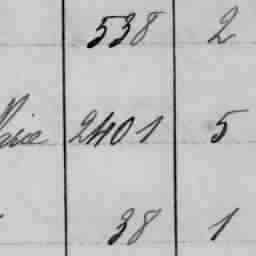 538 2
2401 5
38 1